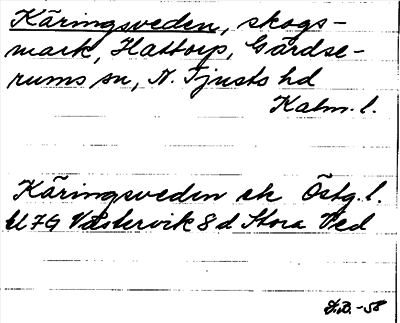 Käringsveden, skogs-
mark, Hattorp, Gärdse-
rums sn, N. Tjusts hd
Kalm. l.
Käringsveden ek Östg. l.
U7G Västervik 8d Stora Ved
-58